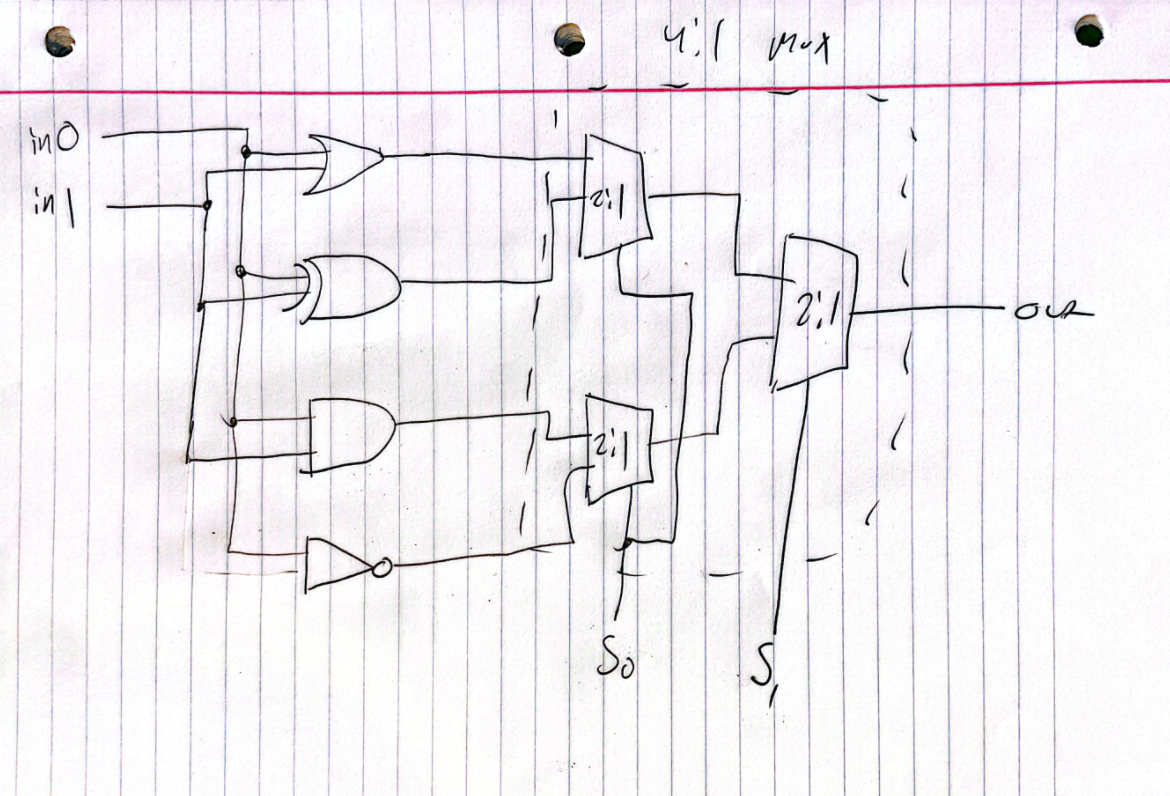 4:1 mux
in0
in1
2:1
2:1
2:1
out
S0
S1